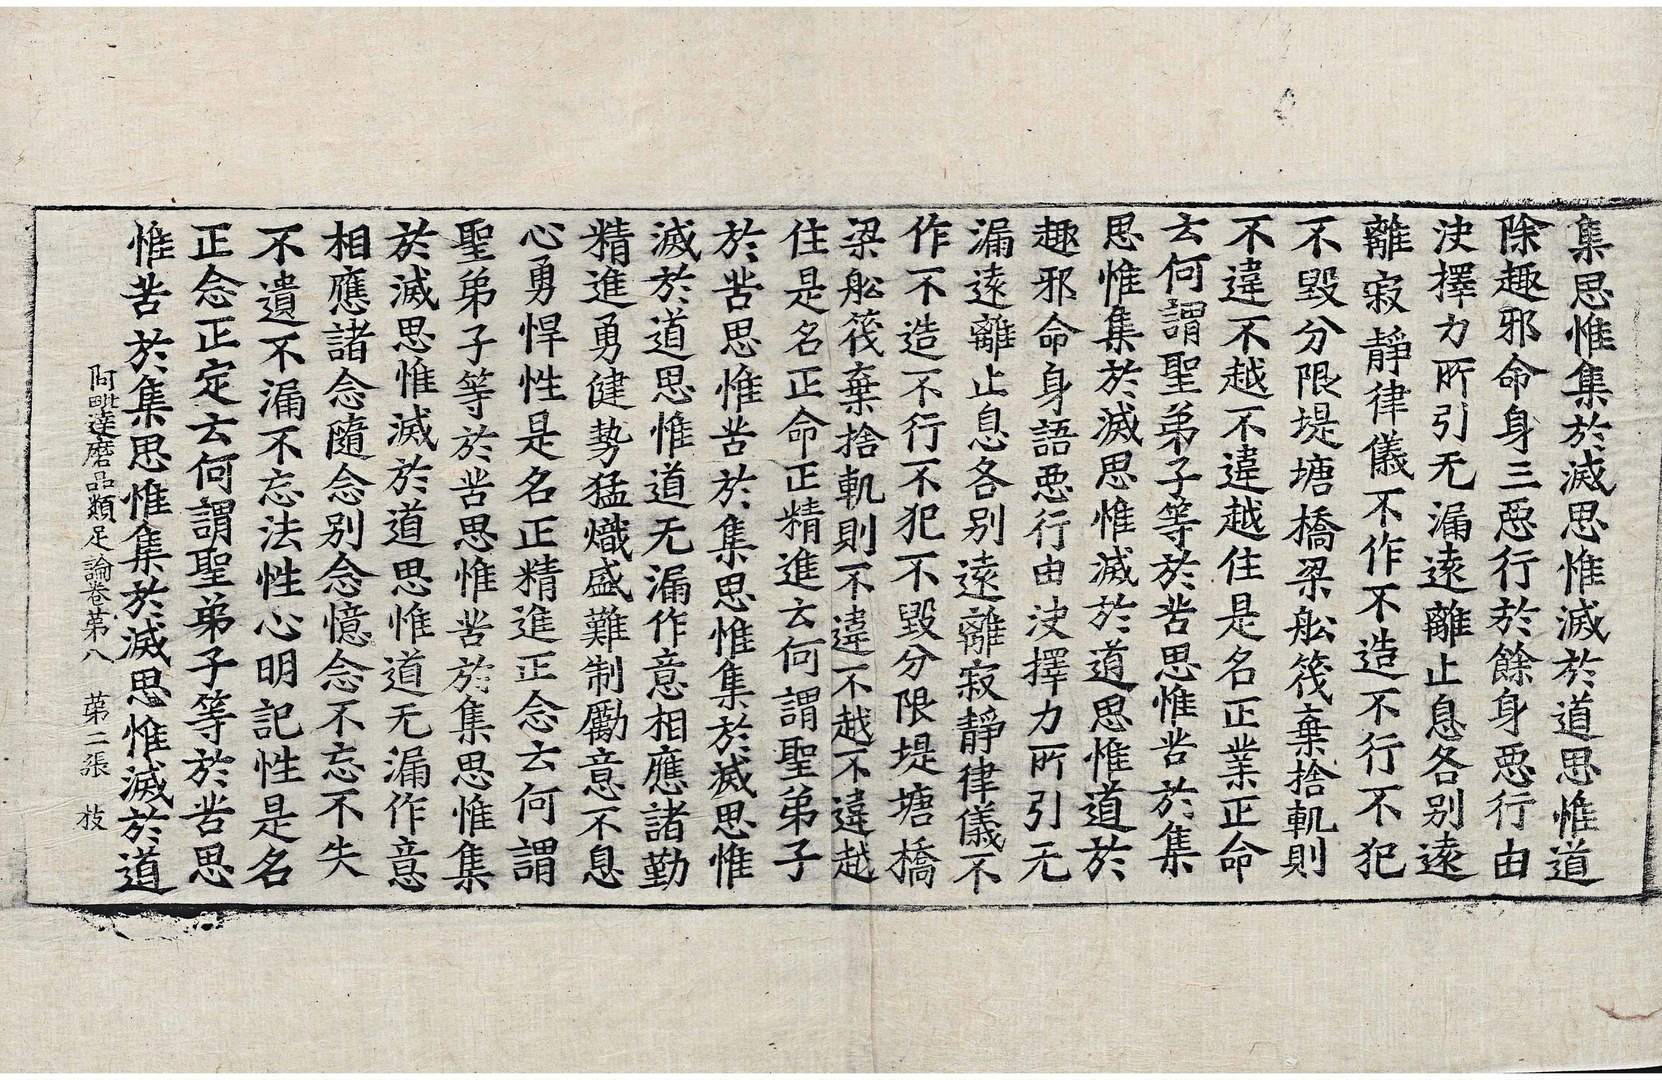 集思惟集於滅思惟滅於道思惟道
除趣邪命身三惡行於餘身惡行由
決擇力所引无漏遠離止息各別遠
離寂靜律儀不作不造不行不犯
不毀分限堤塘橋梁舩筏棄捨軌則
不違不越不違越住是名正業正命
云何謂聖弟子等於苦思惟苦於集
思惟集於滅思惟滅於道思惟道於
趣邪命身語惡行由決擇力所引无
漏遠離止息各別遠離寂靜律儀不
作不造不行不犯不毀分限堤塘橋
梁舩筏棄捨軌則不違不越不違越
住是名正命正精進云何謂聖弟子
於苦思惟苦於集思惟集於滅思惟
滅於道思惟道无漏作意相應諸勤
精進勇健勢猛熾盛難制勵意不息
心勇悍性是名正精進正念云何謂
聖弟子等於苦思惟苦於集思惟集
於滅思惟滅於道思惟道无漏作意
相應諸念隨念別念憶念不忘不失
不遺不漏不忘法性心明記性是名
正念正定云何謂聖弟子等於苦思
惟苦於集思惟集於滅思惟滅於道
阿毗達磨品類足論卷第八 第二張 枝